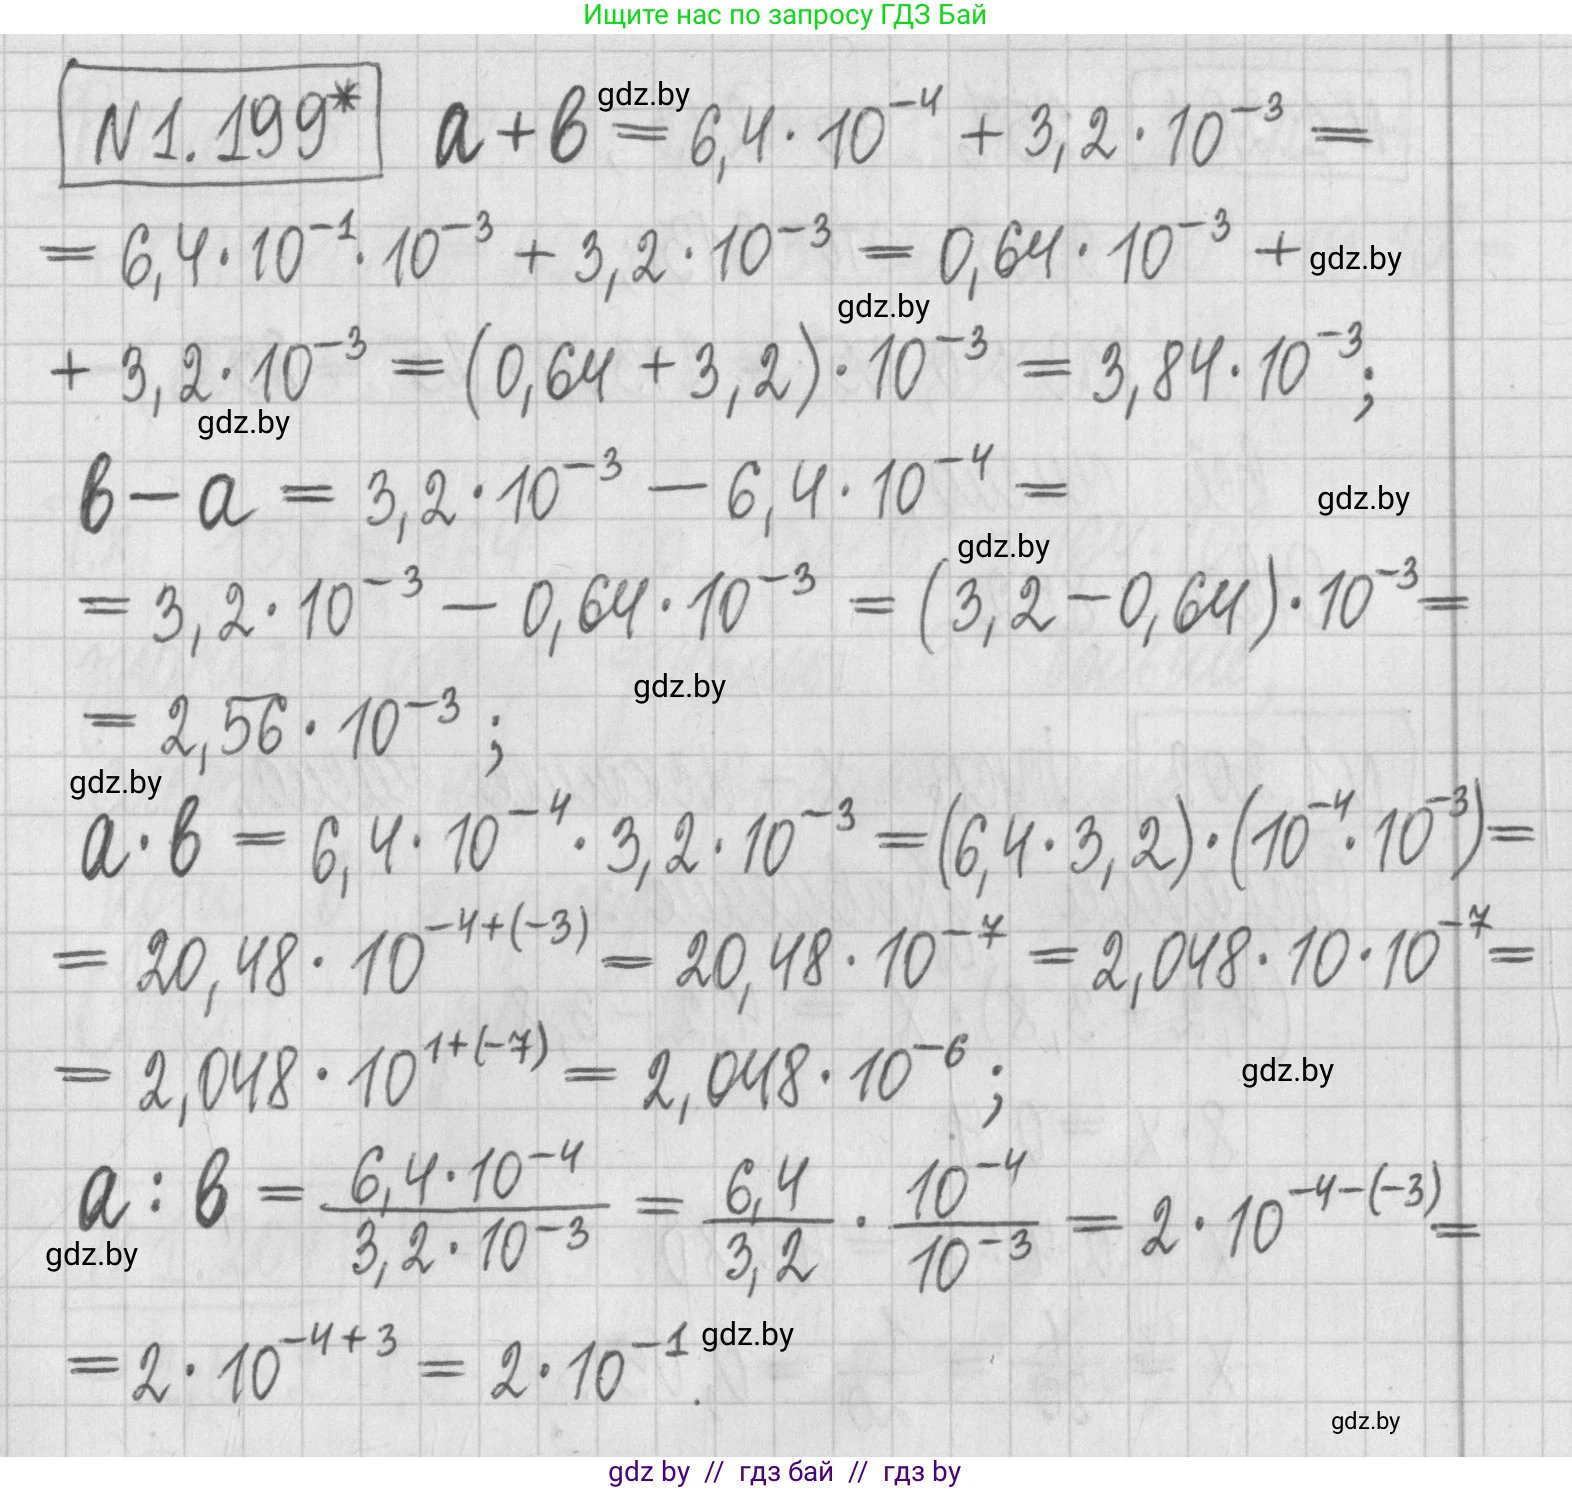 Ищите нас по запросу ГДЗ Бай
N 1.199* a + b = 6,4 · 10^{-4} + 3,2 · 10^{-3} =
gdz.by
= 6,4 · 10^{-1} · 10^{-3} + 3,2 · 10^{-3} = 0,64 · 10^{-3} +
gdz.by
gdz.by
+ 3,2 · 10^{-3} = (0,64 + 3,2) · 10^{-3} = 3,84 · 10^{-3};
gdz.by
b - a = 3,2 · 10^{-3} - 6,4 · 10^{-4} =
gdz.by
gdz.by
= 3,2 · 10^{-3} - 0,64 · 10^{-3} = (3,2 - 0,64) · 10^{-3} =
gdz.by
= 2,56 · 10^{-3};
gdz.by
a · b = 6,4 · 10^{-4} · 3,2 · 10^{-3} = (6,4 · 3,2) · (10^{-4} · 10^{-3}) =
= 20,48 · 10^{-4+(-3)} = 20,48 · 10^{-7} = 2,048 · 10 · 10^{-7} =
= 2,048 · 10^{1+(-7)} = 2,048 · 10^{-6};
gdz.by
a : b = \frac{6,4 · 10^{-4}}{3,2 · 10^{-3}} = \frac{6,4}{3,2} · \frac{10^{-4}}{10^{-3}} = 2 · 10^{-4-(-3)} =
gdz.by
= 2 · 10^{-4+3} = 2 · 10^{-1}.
gdz.by
gdz.by
gdz by // гдз бай // гдз by